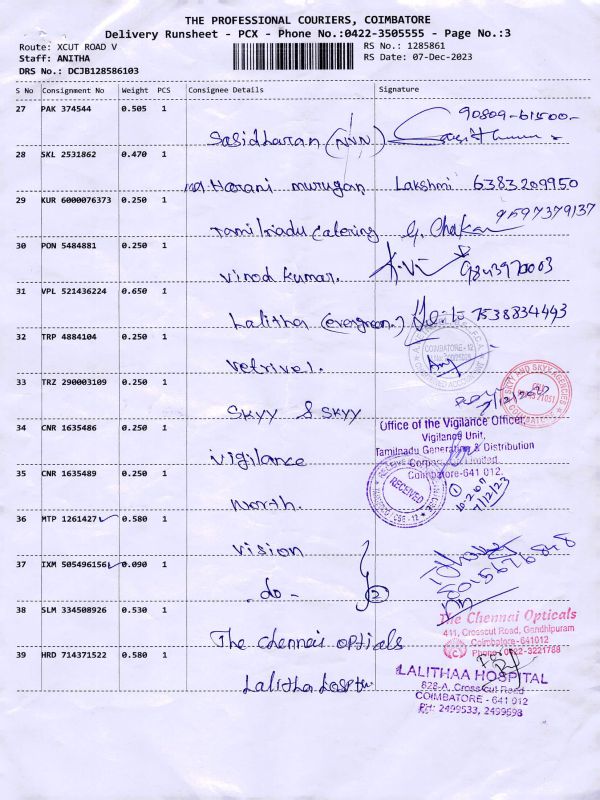 THE PROFESSIONAL COURIERS, COIMBATORE
Delivery Runsheet - PCX - Phone No.:0422-3505555 - Page No.:3
Route: XCUT ROAD V
RS No.: 1285861
Staff: ANITHA
RS Date: 07-Dec-2023
DRS No.: DCJB128586103
S No Consignment No Weight PCS Consignee Details Signature
27 PAK 374544 0.505 1
90809-61500-
Sasidharan (NNN)
28 SKL 2531862 0.470 1
Harani murugan Lakshmi 6383209950
29 KUR 6000076373 0.250 1
Tamilnadu Catering G. Chakar 9597379137
30 PON 5484881 0.250 1
Vinod kumar. K.Vi 9843970003
31 VPL 521436224 0.650 1
Lalitha (evergreen.) 7538834443
32 TRP 4884104 0.250 1
COIMBATORE - 12
Vetrivel.
33 TRZ 290003109 0.250 1
SKYY AND SKYY AGENCIES
COIMBATORE
SKYY & SKYY
34 CNR 1635486 0.250 1
Office of the Vigilance Officer,
Vigilance Unit,
Tamilnadu Generation & Distribution
Corporation Limited
Coimbatore-641 012.
Vigilance
35 CNR 1635489 0.250 1
RECEIVED
7/12/23
North.
36 MTP 1261427 0.580 1
Vision
37 IXM 505496156 0.090 1
-do- 2
38 SLM 334508926 0.530 1
The Chennai Opticals
411, Crosscut Road, Gandhipuram
Coimbatore-641012
Phone: 0422-3221788
The Chennai optials
39 HRD 714371522 0.580 1
LALITHAA HOSPITAL
828-A, Cross cut Road
COIMBATORE - 641 012
PH: 2499533, 2499598